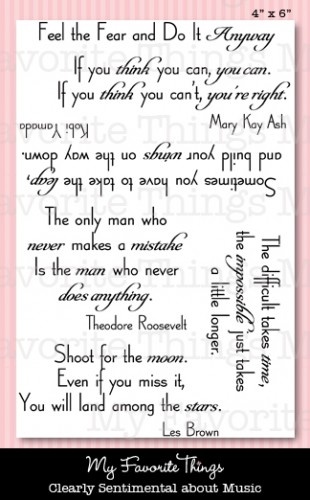 4" x 6"
Feel the Fear and Do It Anyway
If you think you can, you can.
If you think you can't, you're right.
Mary Kay Ash
Sometimes you have to take the leap,
and build your wings on the way down.
Kobi Yamada
The only man who
never makes a mistake
Is the man who never
does anything.
Theodore Roosevelt
The difficult takes time,
the impossible just takes
a little longer.
Shoot for the moon.
Even if you miss it,
You will land among the stars.
Les Brown
My Favorite Things
Clearly Sentimental about Music